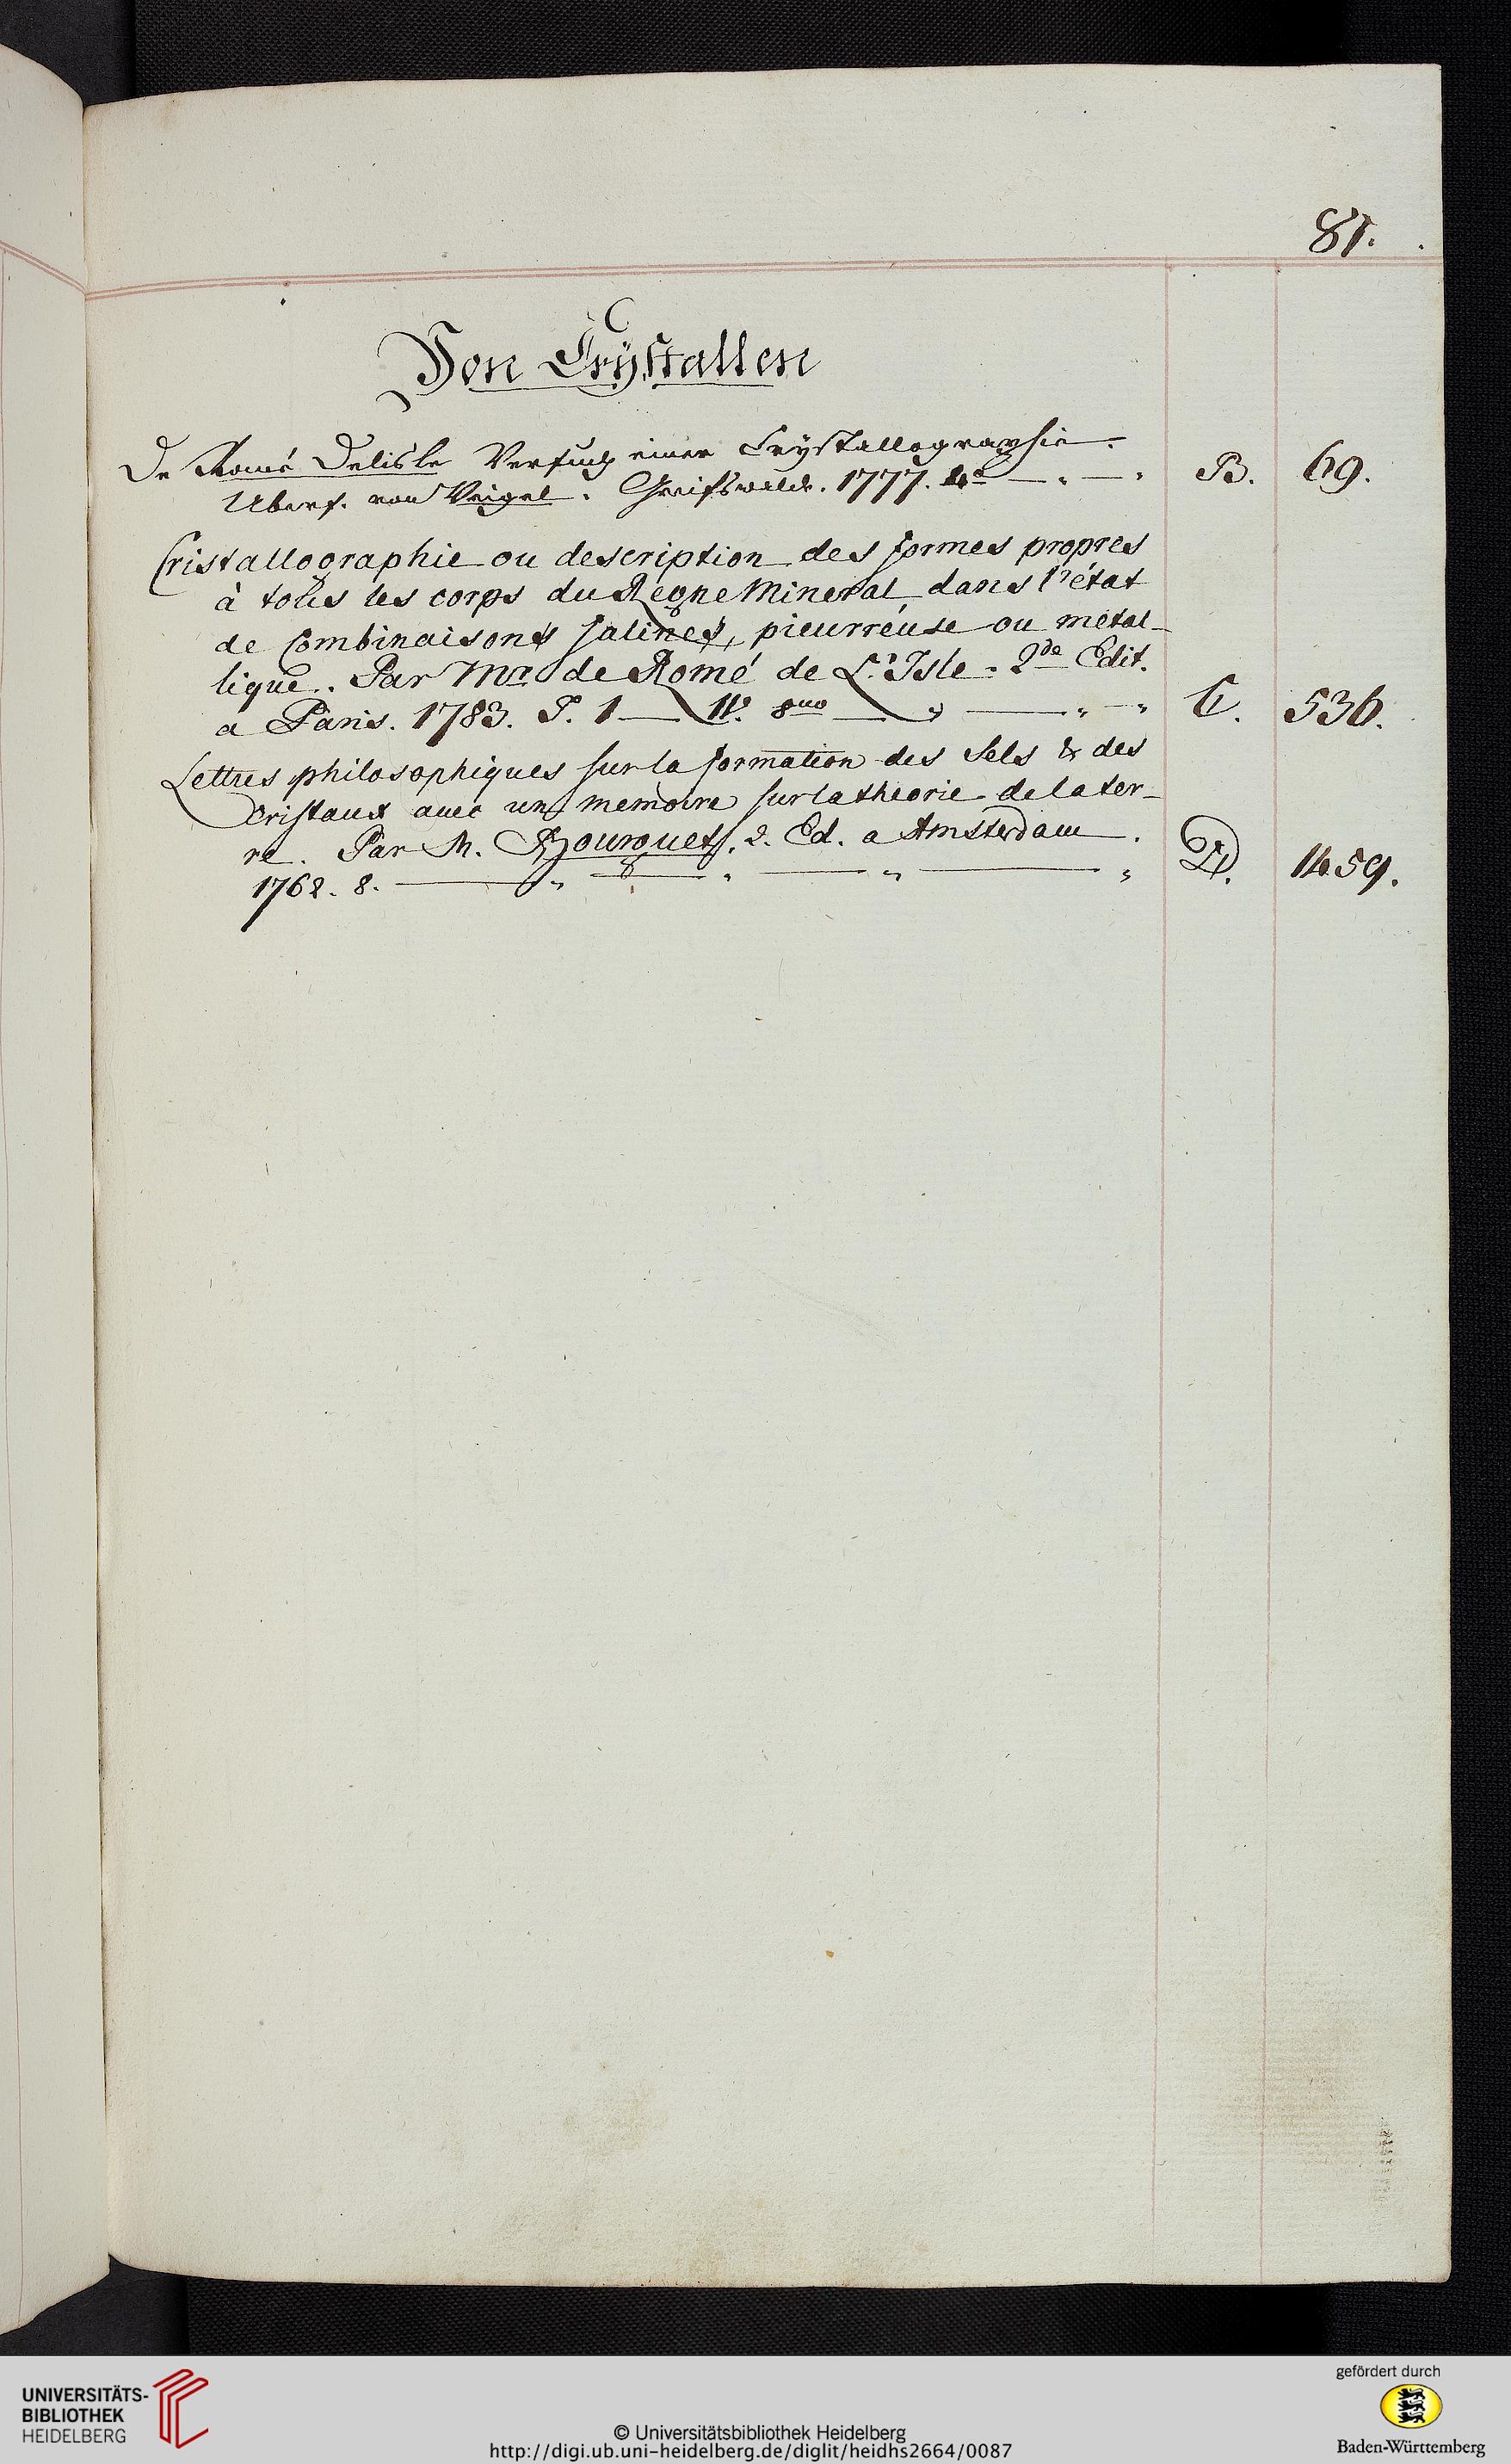 81.
Von Crÿstallen
De Romé Delisle Versuch einer Crÿstallographie.
Übers. von Weigel. Greifswalde. 1777. 4° — „ — „ B. 69.
Cristallographie ou description des formes propres
à tous les corps du Regne Mineral, dans l'état
de Combinaisons salines, pieurreuse ou métal-
lique. Par Mr. de Romé de L'Isle. 2de Edit.
a Paris. 1783. T. 1 — IV. 8uo — „ — „ — „ C. 536.
Lettres philosophiques sur la formation des Sels & des
Cristaux avec un memoire sur la theorie de la ter-
re. Par M. Bourguet. 2. Ed. a Amsterdam.
1762. 8. — „ — „ — „ — „ D. 1459.
UNIVERSITÄTS-
BIBLIOTHEK
HEIDELBERG
© Universitätsbibliothek Heidelberg
http://digi.ub.uni-heidelberg.de/diglit/heidhs2664/0087
gefördert durch
Baden-Württemberg